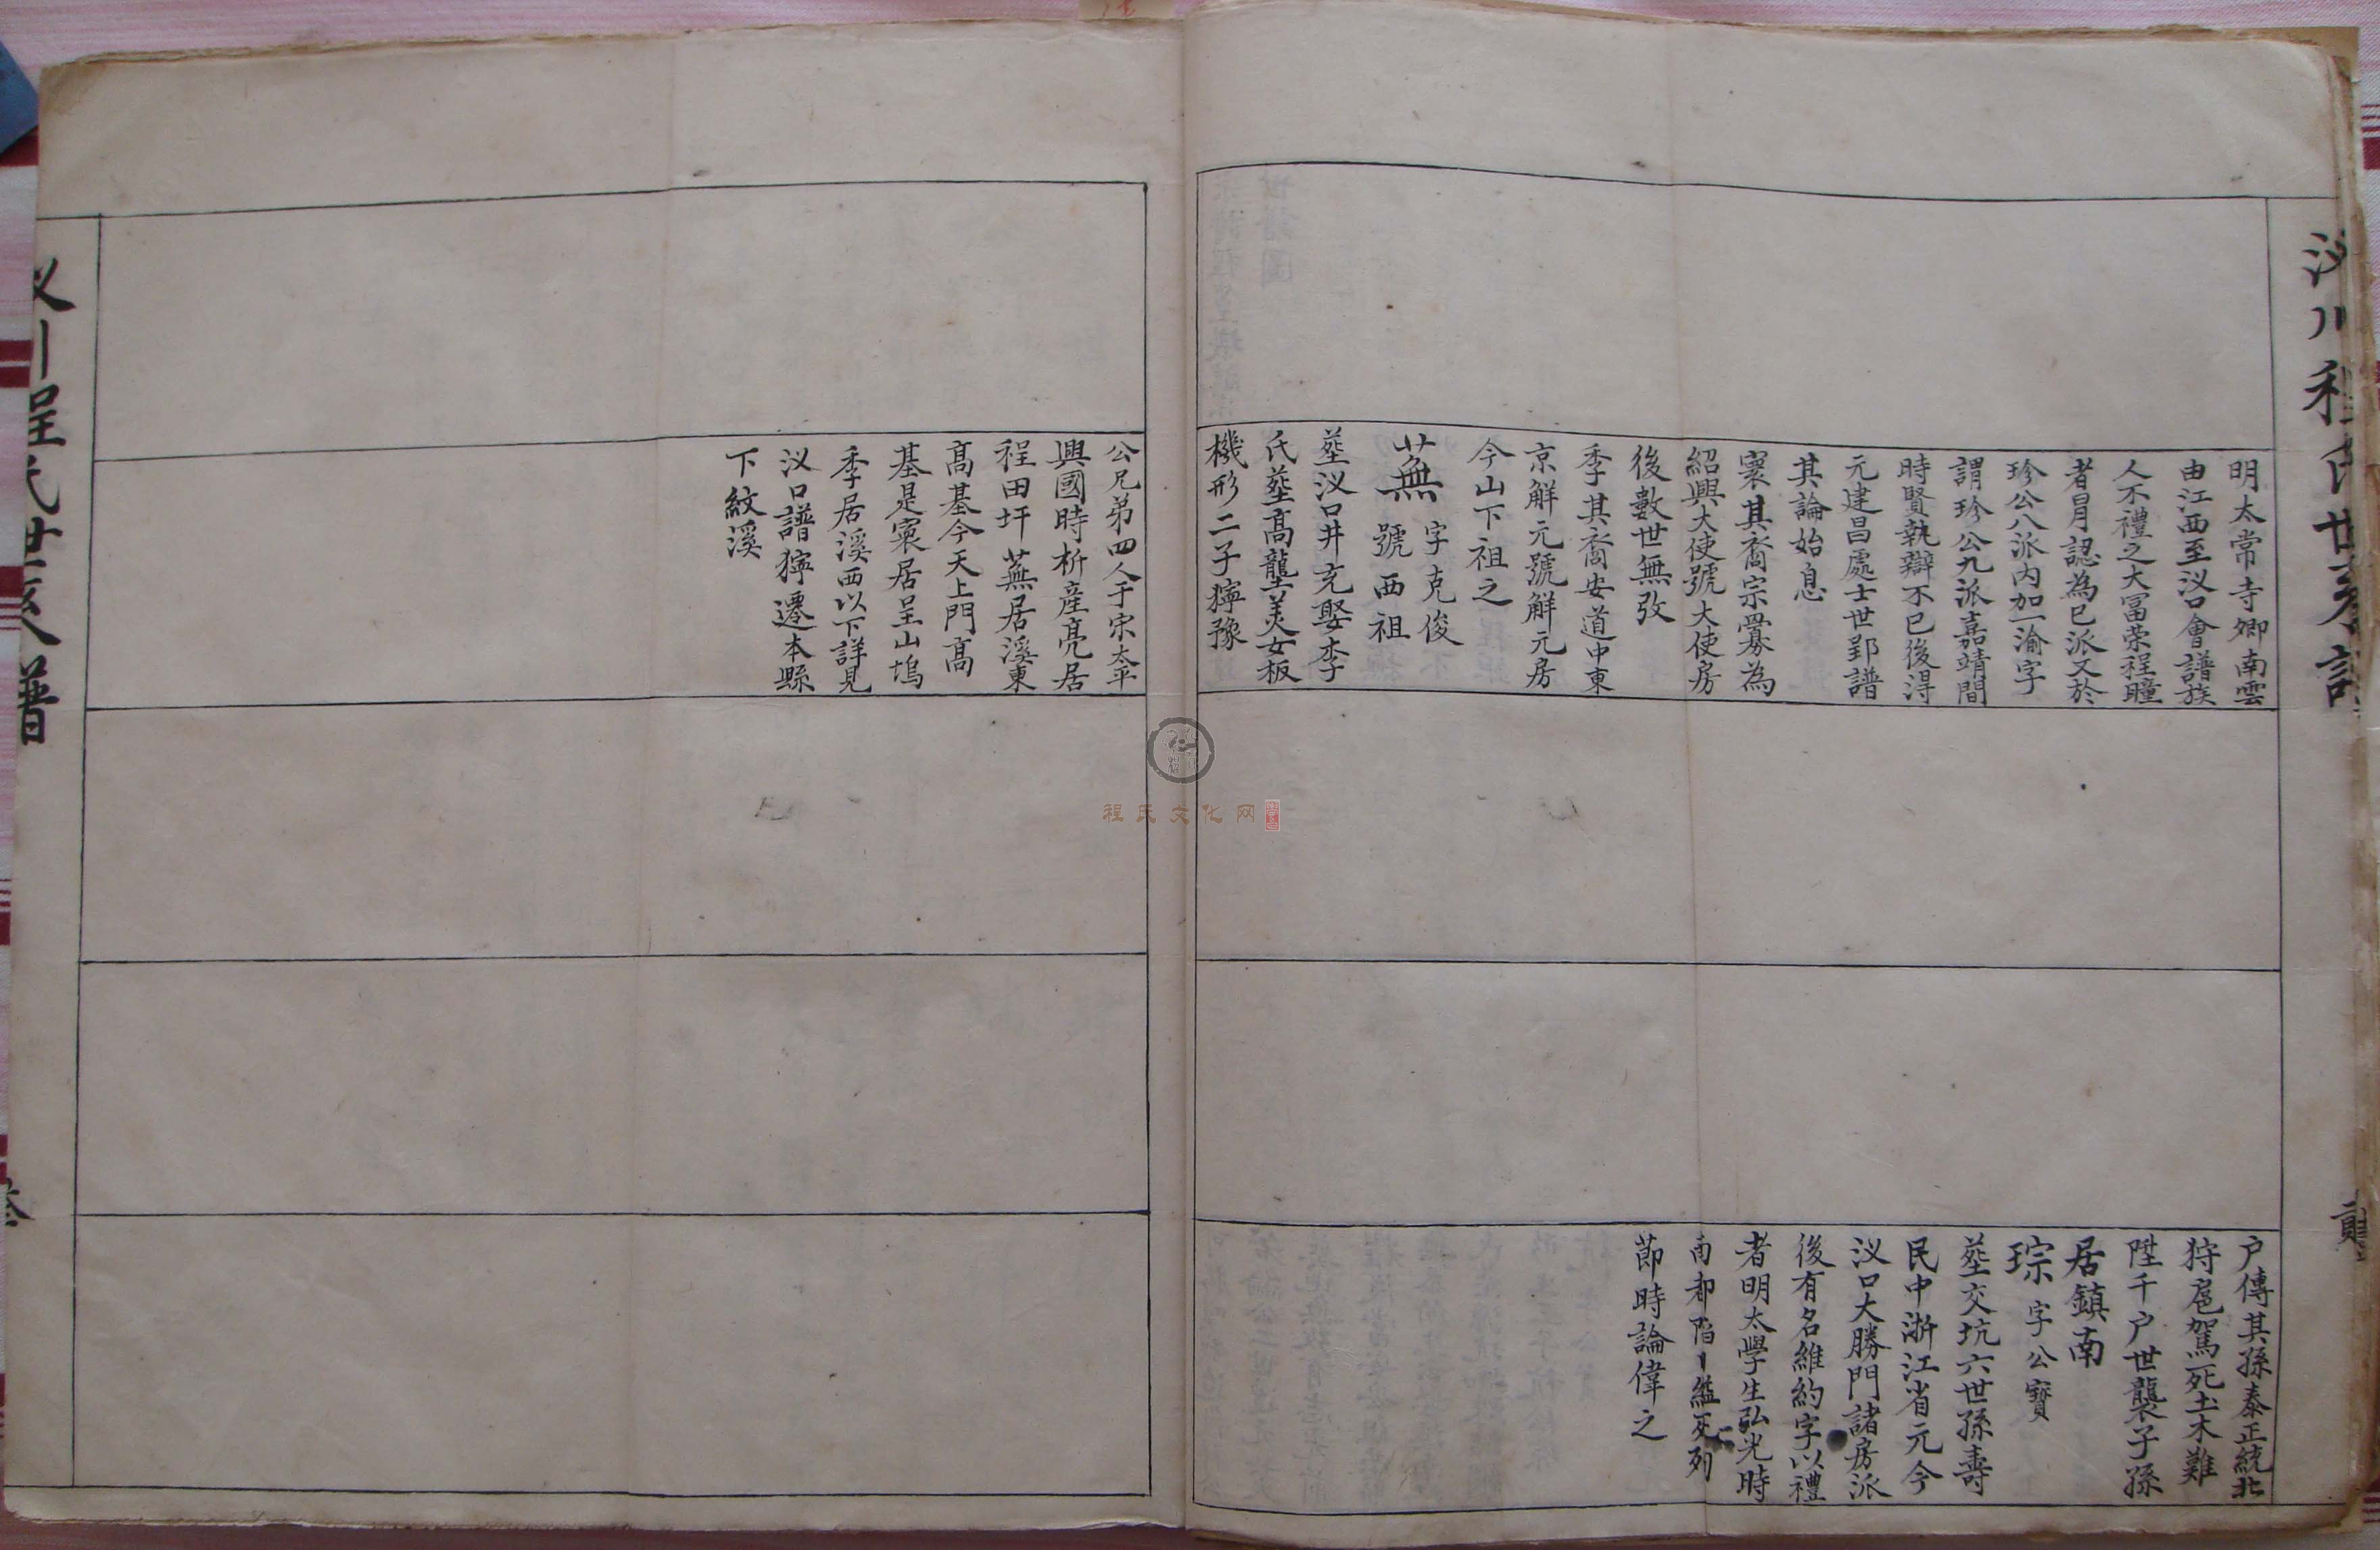 汊川程氏世系譜
貳
明太常寺卿南雲
由江西至汊口會譜族
人不禮之大冨荣程瞳
者冐認為已派又於
珍公八派内加一渝字
謂珍公九派嘉靖間
時賢執辯不已後淂
元建昌處士世郢譜
其論始息
寔其裔宗㝢為
紹興大使號大使房
後數世無攷
季其裔安道中東
京解元號解元房
今山下祖之
蕪 字克俊
號西祖
塟汊口井充娶李
氏塟高壟美女板
機形二子獰豫
户傳其孫泰正統北
狩扈駕死土木難
陞千户世襲子孫
居鎮南
琮 字公寶
塟交坑六世孫壽
民中浙江省元今
汊口大勝門諸房派
後有名維約字以禮
者明太學生弘光時
南都陷自縊死列
莭時論偉之
公兄弟四人于宋太平
興國時析産亮居
程田圩蕪居溪東
高基今天上門高
基是寔居呈山塢
季居溪西以下詳見
汊口譜獰遷本縣
下紋溪
汊川程氏世系譜
叁
程氏文化网